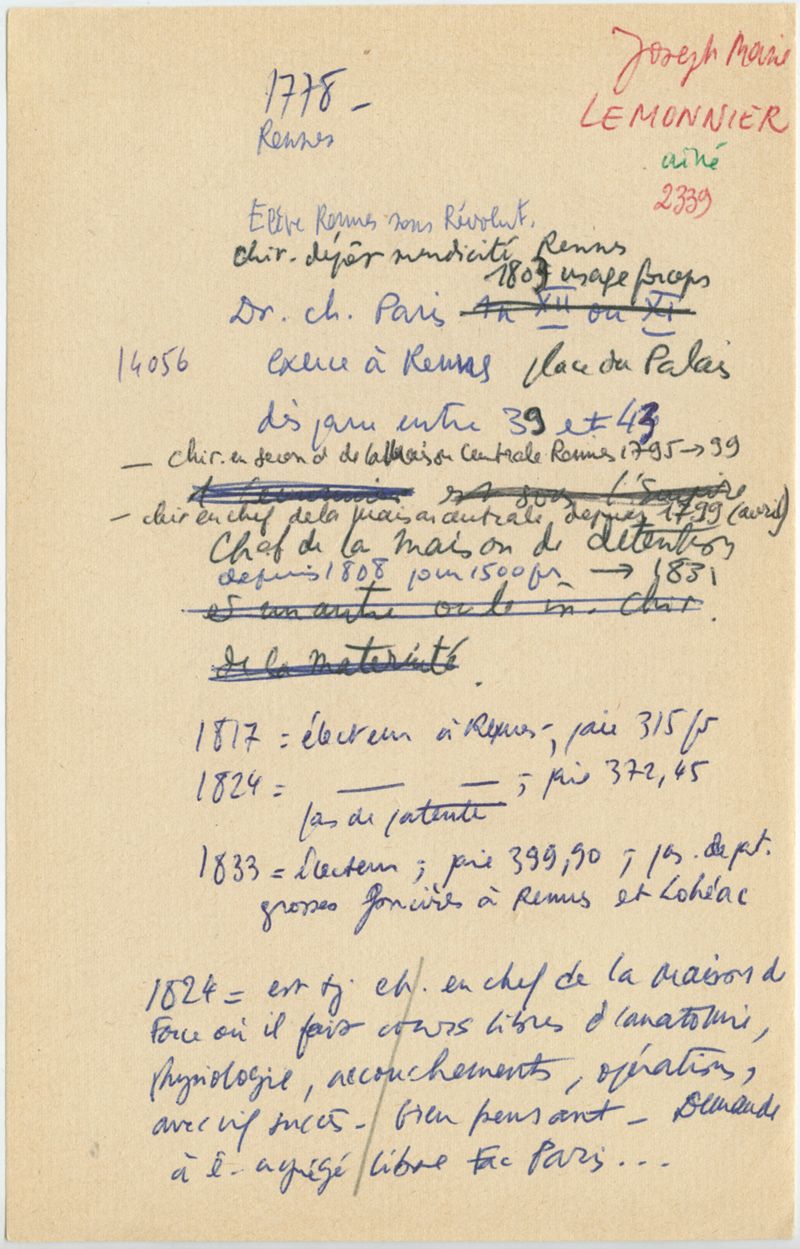 Joseph Marie
LEMONNIER
aîné
2339
1778 -
Rennes
Elève Rennes sous Révolut.
chir. dépôt mendicité Rennes
1803 usage forceps
Dr. ch. Paris an XII ou XI
14056 exerce à Rennes place du Palais
dès janv entre 39 et 43
- chir. en second de la Maison Centrale Rennes 1795 → 99
et sous l'Empire
- chir en chef de la maison centrale depuis 1799 (avril)
Chef de la Maison de détention
depuis 1808 pour 1500 frs → 1831
et un autre ou le m. Chir.
de la maternité
1817 = électeur à Rennes -, paie 315 fr
1824 = — — ; paie 372,45
pas de patente
1833 = Electeur ; paie 399,90 ; pas de pat.
grosses foncières à Rennes et Lohéac
1824 = est tj. ch. en chef de la Maison de
Force où il fait cours libres d'anatomie,
physiologie, accouchements, opérations,
avec vif succès - bien pensant - Demande
à ê. agrégé libre Fac Paris...